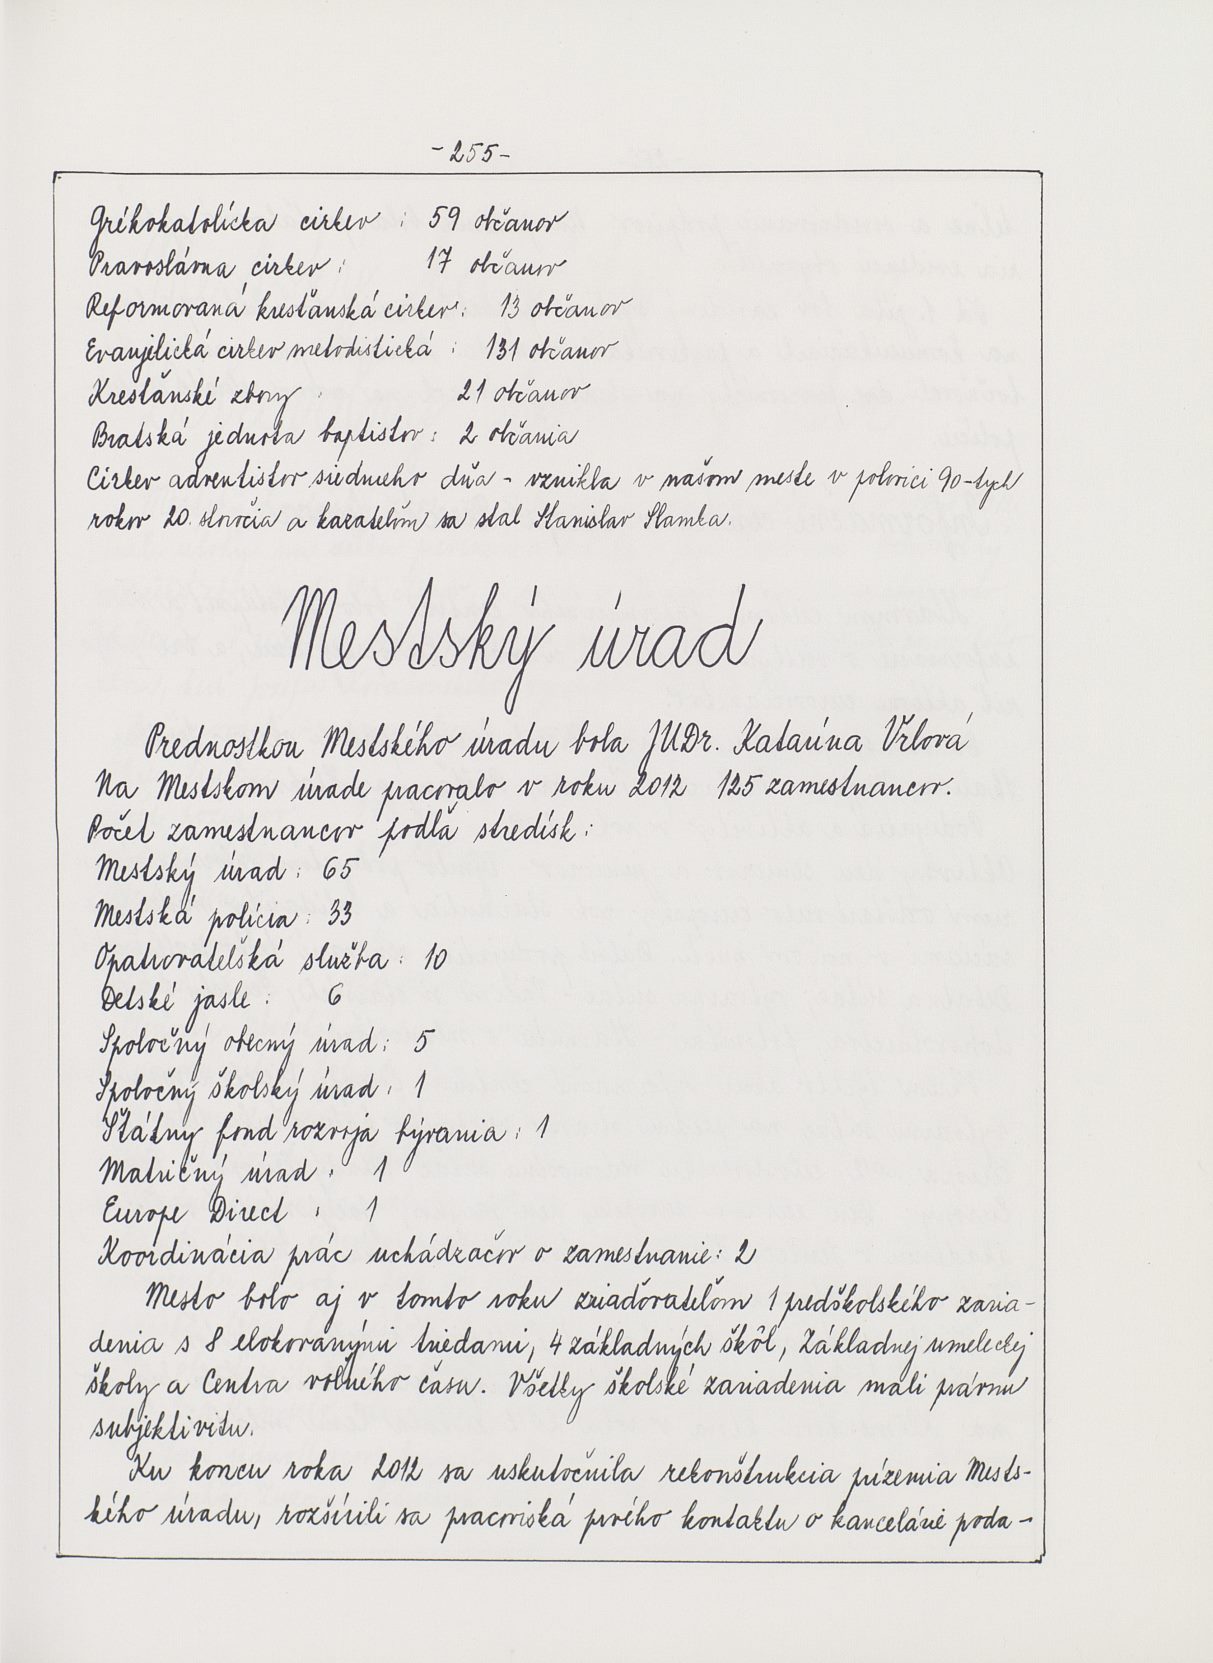 -255-
Grékokatolícka cirkev : 59 občanov
Pravoslávna cirkev : 17 občanov
Reformovaná kresťanská cirkev : 13 občanov
Evanjelická cirkev metodistická : 131 občanov
Kresťanské zbory : 21 občanov
Bratská jednota baptistov : 2 občania
Cirkev adventistov siedmeho dňa - vznikla v našom meste v polovici 90-tych
rokov 20. storočia a kazateľom sa stal Stanislav Slamka.
Mestský úrad
Prednostkou Mestského úradu bola JUDr. Katarína Vrlová
Na Mestskom úrade pracovalo v roku 2012 125 zamestnancov.
Počet zamestnancov podľa stredísk :
Mestský úrad : 65
Mestská polícia : 33
Opatrovateľská služba : 10
Detské jasle : 6
Spoločný obecný úrad : 5
Spoločný školský úrad : 1
Štátny fond rozvoja bývania : 1
Matričný úrad : 1
Europe Direct : 1
Koordinácia prác uchádzačov o zamestnanie : 2
Mesto bolo aj v tomto roku zriaďovateľom 1 predškolského zaria-
denia s 8 elokovanými triedami, 4 základných škôl, Základnej umeleckej
školy a Centra voľného času. Všetky školské zariadenia mali právnu
subjektivitu.
Ku koncu roka 2012 sa uskutočnila rekonštrukcia prízemia Mests-
kého úradu, rozšírili sa pracoviská prvého kontaktu o kancelárie poda-